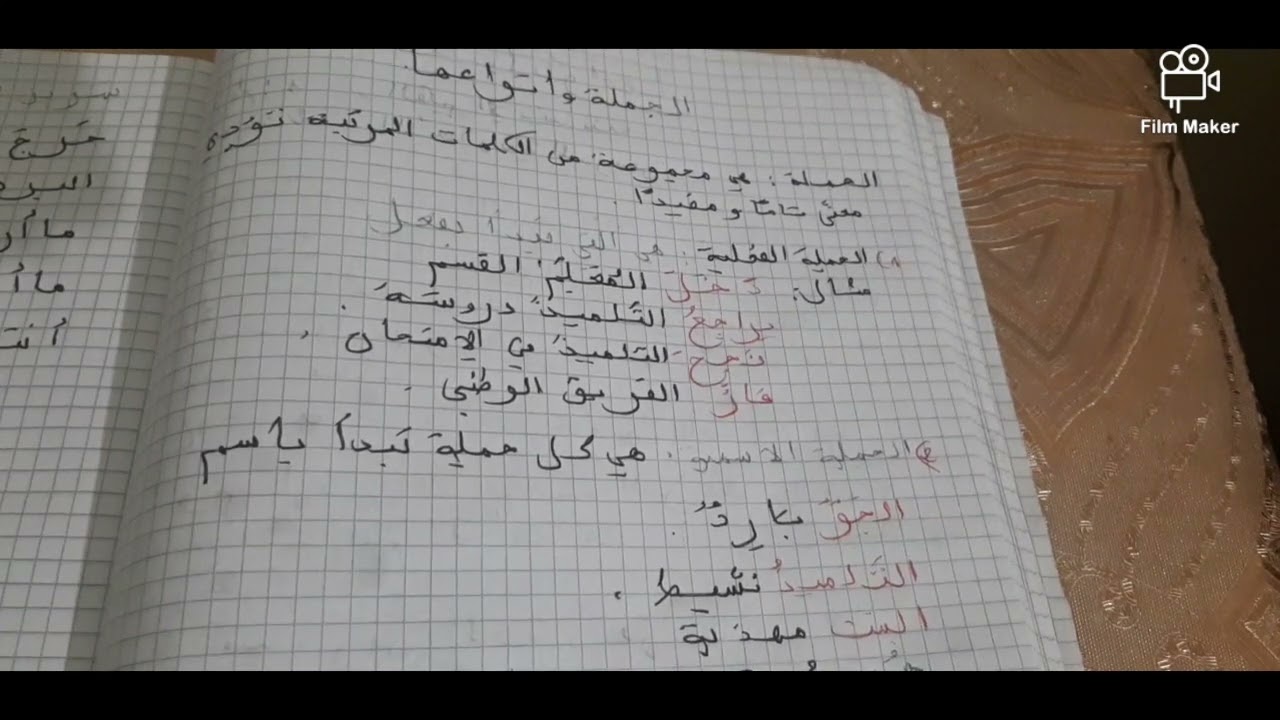 الجملة وانواعها.
الجملة: هي مجموعة من الكلمات المرتبة تؤدي
معنى تامًا و مفيدًا.
1) الجملة الفعلية: هي التي تبدأ بفعل
مثال: دَخَلَ المُعَلِّمُ القسم
يراجعُ التِّلميذُ دروسَهُ.
نجحَ التلميذُ في الإمتحان.
فازَ الفريق الوطني.
2) الجملة الاسمية: هي كل جملة تبدأ باسم
الجَوُّ بارِدٌ.
التِّلميذُ نشيط.
البنت مهذبة
خرجَ
ما أ
أنت
Film Maker